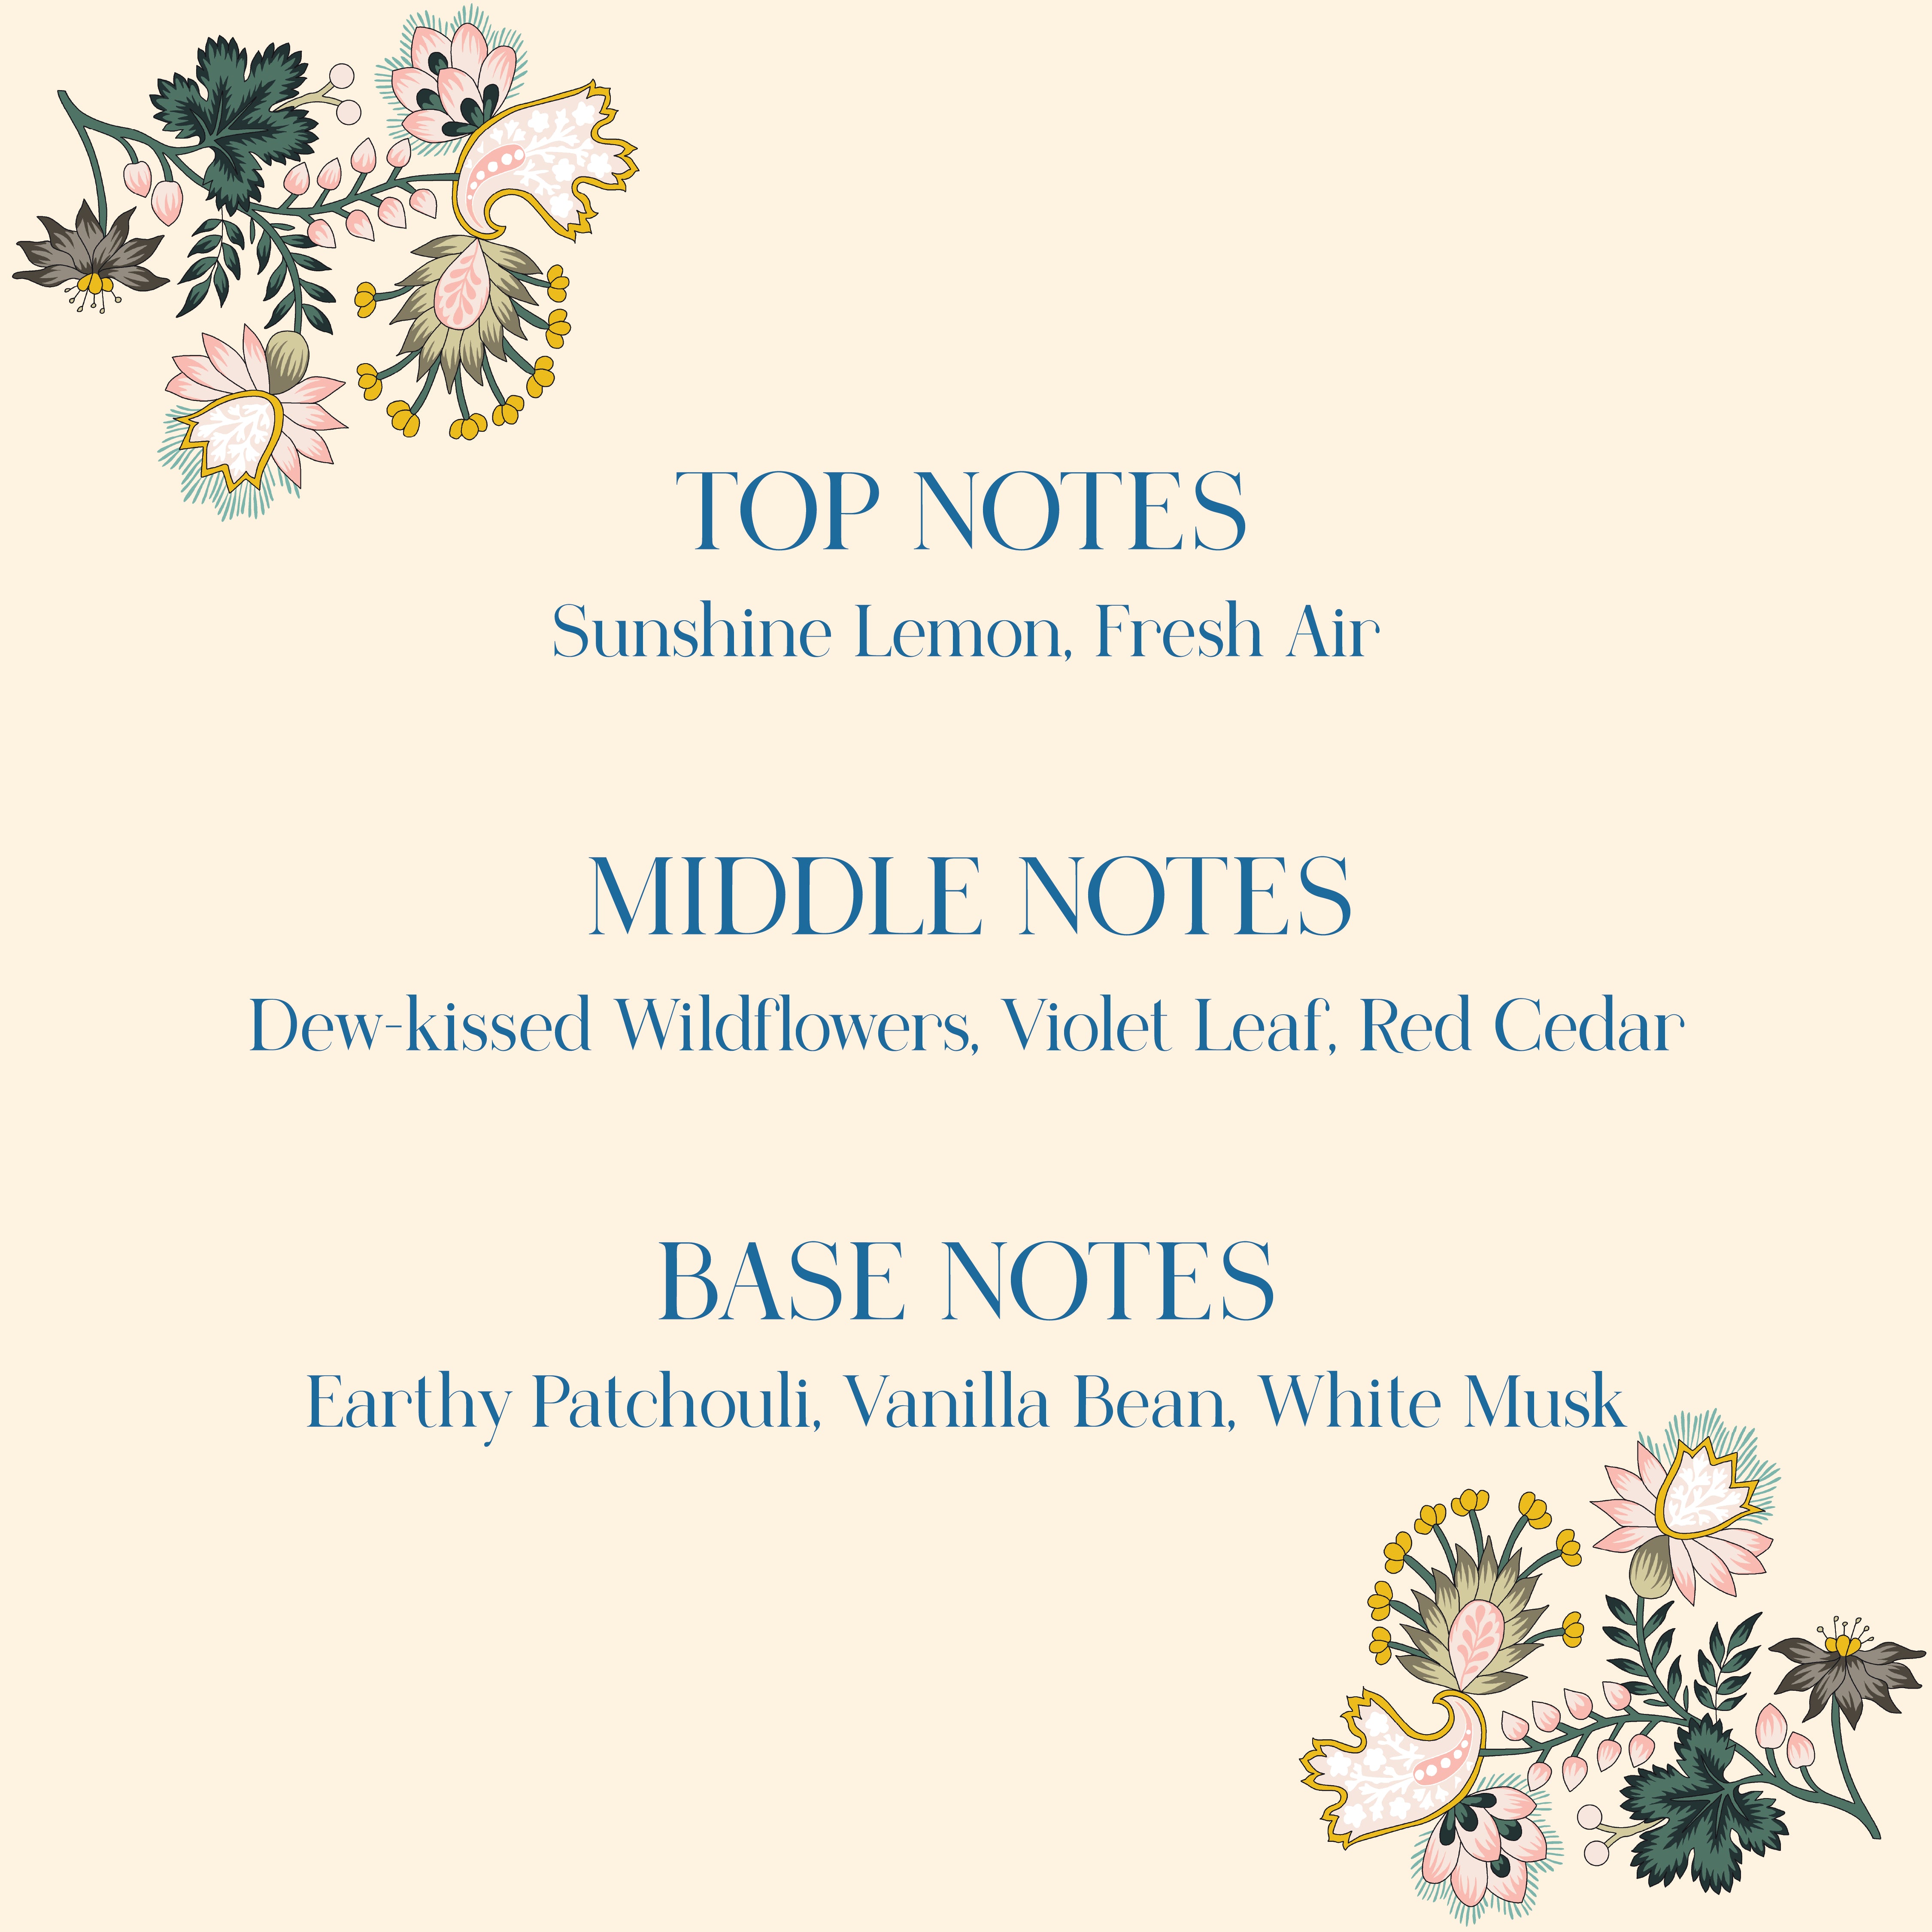 TOP NOTES
Sunshine Lemon, Fresh Air
MIDDLE NOTES
Dew-kissed Wildflowers, Violet Leaf, Red Cedar
BASE NOTES
Earthy Patchouli, Vanilla Bean, White Musk